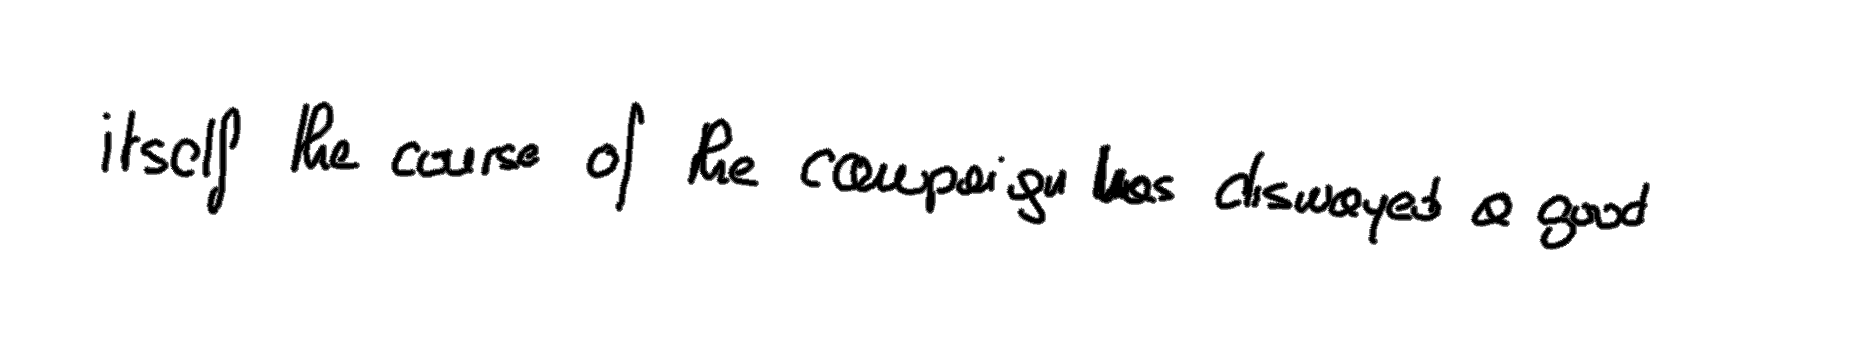 itself the course of the campaign has dismayed a good